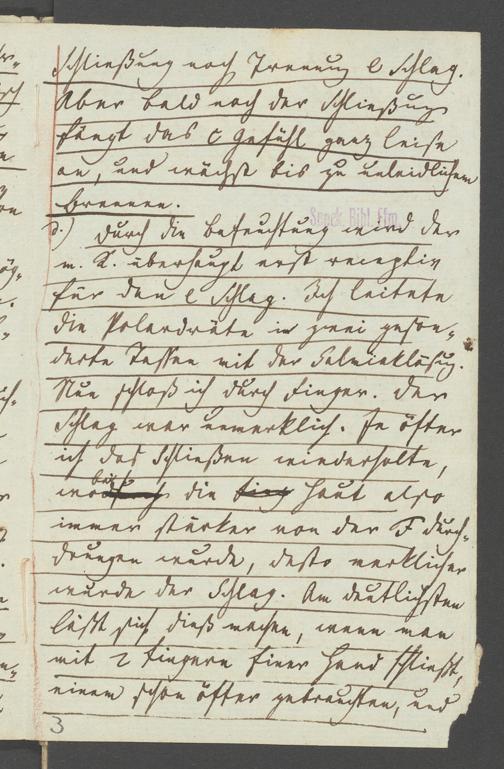 Schließung nach Trennung e Schlag.
Aber bald nach der Schließung
fängt das c Gefühl ganz leise
an, und wächst bis zu unleidlichem
brennen.
Senck. Bibl. Ffm.
d.) Durch die Befeuchtung wird der
m. K. überhaupt erst receptiv
für den e Schlag. Ich leitete
die Polardräte in zwei geson-
derte Tassen mit der Salmiaklösung.
Nun schloß ich durch Finger. Der
Schlag war unmerklich. Je öfter
ich das Schließen wiederholte,
die Haut also
immer stärker von der F durch-
drungen wurde, desto merklicher
wurde der Schlag. Am deutlichsten
läßt sich dieß machen, wenn man
mit 2 Fingern Einer Hand schließt,
einem schon öfter gebrauchten, und
3